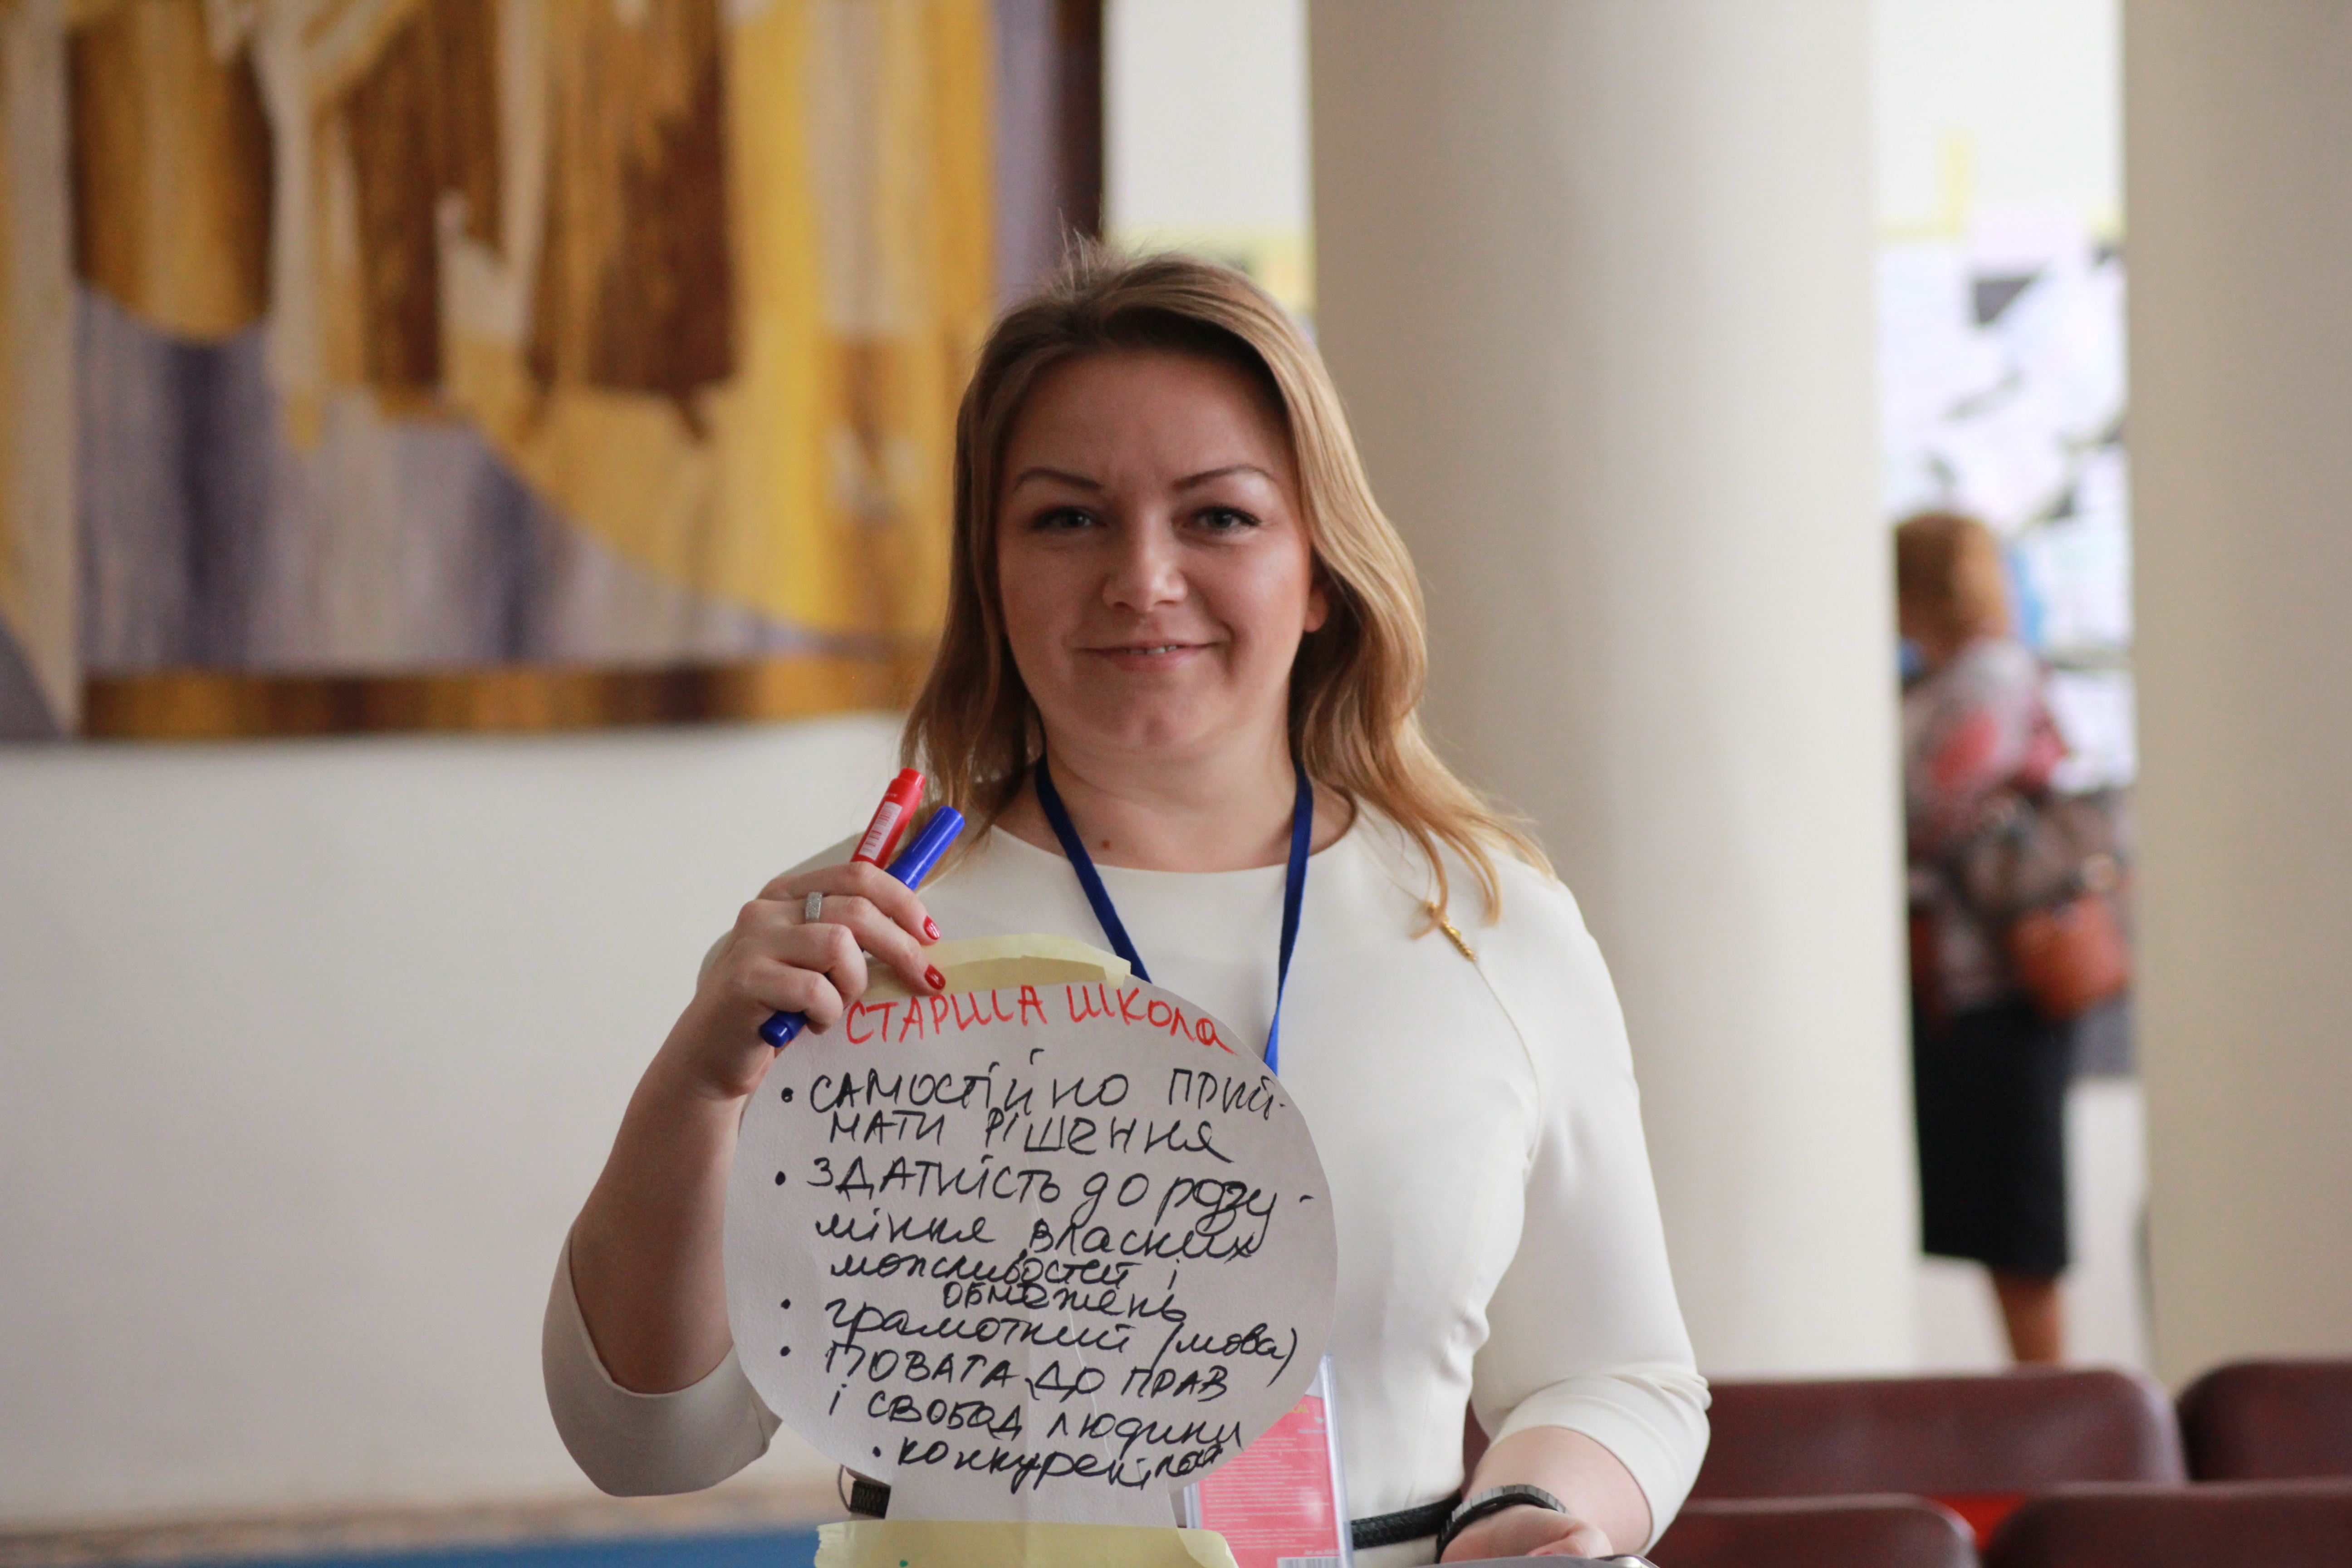 СТАРША ШКОЛа
• САМОСТІЙНО ПРИЙ-
МАТИ РІШЕННЯ
• ЗДАТНІСТЬ ДО розу-
міння власних
можливостей і
обмежень
• грамотний (мова)
• ПОВАГА ДО ПРАВ
і СВОБОД людини